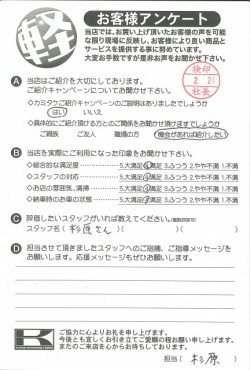 軽
お客様アンケート
当店では、お買い上げ頂いたお客様の声を可能
な限り現場に反映し、お客様により良い商品と
サービスを提供する事に努めています。
大変お手数ですが是非お声をお聞かせ下さい。
検印
2. 21
社長
A 当店はご紹介を大切にしております。
ご紹介キャンペーンについてお聞かせ下さい。
・カミタケご紹介キャンペーンのご説明はありましたでしょうか
はい いいえ
・具体的にご紹介頂ける方とのご関係をお聞かせ頂けますでしょうか
ご親族 ご友人 職場の方 機会があれば紹介したい
B 当店を実際にご利用になった印象をお聞かせ下さい。
◇総合的な満足度 5.大満足 4.満足 3.ふつう 2.やや不満 1.不満
◇スタッフの対応 5.大満足 4.満足 3.ふつう 2.やや不満 1.不満
◇お店の雰囲気、清掃 5.大満足 4.満足 3.ふつう 2.やや不満 1.不満
◇納車時のお車の状態 5.大満足 4.満足 3.ふつう 2.やや不満 1.不満
C 評価したいスタッフがいれば教えてください。(複数回答可)
スタッフ名 ( 杉原さん )( )( )
D 担当させて頂きましたスタッフへのご指摘、ご指導メッセージを
お願いします。応援メッセージもぜひお願いします。
K
ご協力に心よりお礼を申し上げます。
今後とも宜しくお引き立てご愛顧の程お願い申し上げます。
またのご来店を心からお待ちしております。
担当 ( 杉原 )